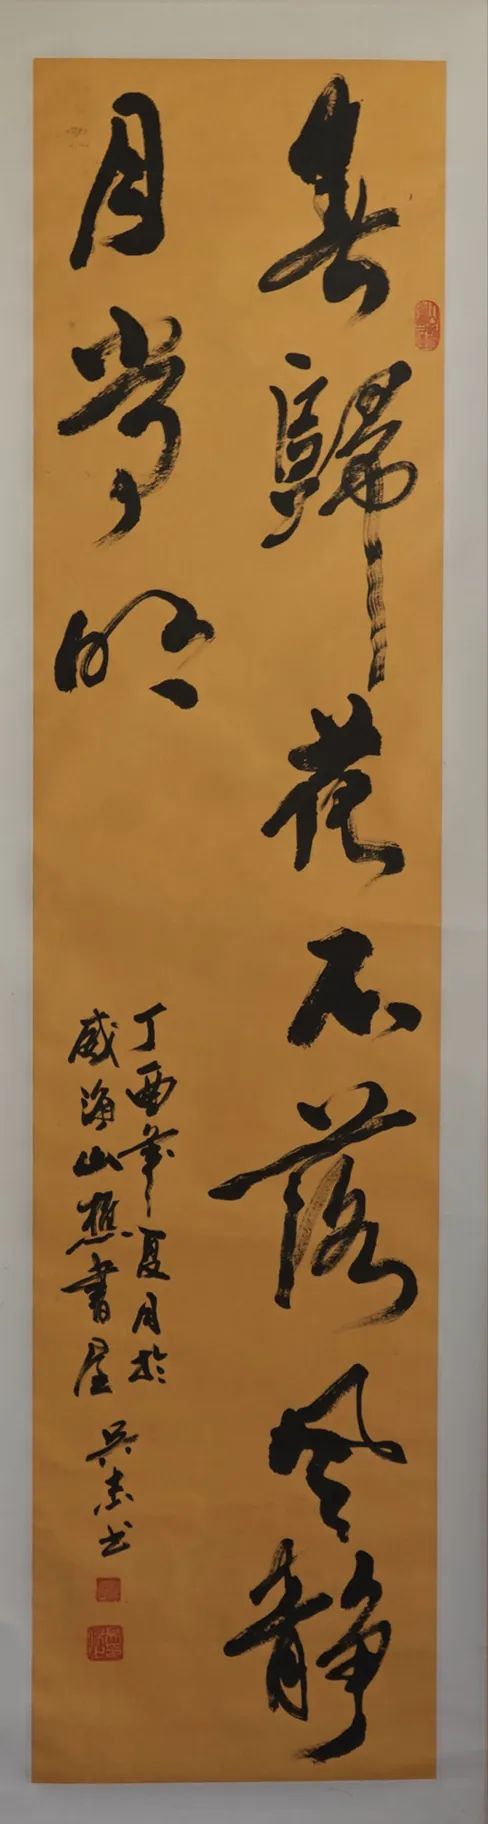 春歸花不落风静
月常明
丁酉年夏月於
威海山樵書屋 吴志书